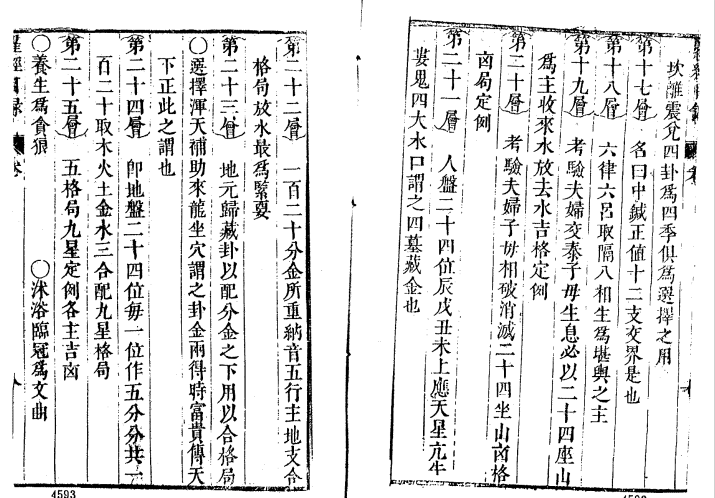 坎離震兌四卦爲四季俱爲選擇之用
第十七層　名曰中鍼正値十二支交界是也
第十八層　六律六呂取隔八相生爲堪輿之主
第十九層　考驗夫婦交泰子毋生息必以二十四座山
爲主收來水放去水吉格定例
第二十層　考驗夫婦子毋相破消滅二十四坐山凶格
凶局定例
第二十一層　人盤二十四位辰戌丑未上應天星亢牛
婁鬼四大水口謂之四墓藏金也
第二十二層　一百二十分金所重納音五行主地支合
格局放水最爲緊要
第二十三層　地元歸藏卦以配分金之下用以合格局
〇選擇渾天補助來龍坐穴謂之卦金兩得時富貴傳天
下正此之謂也
第二十四層　卽地盤二十四位毎一位作五分分共一
百二十取木火土金水三合配九星格局
第二十五層　五格局九星定例各主吉凶
〇養生爲貪狼　〇沐浴臨冠爲文曲
八
4593